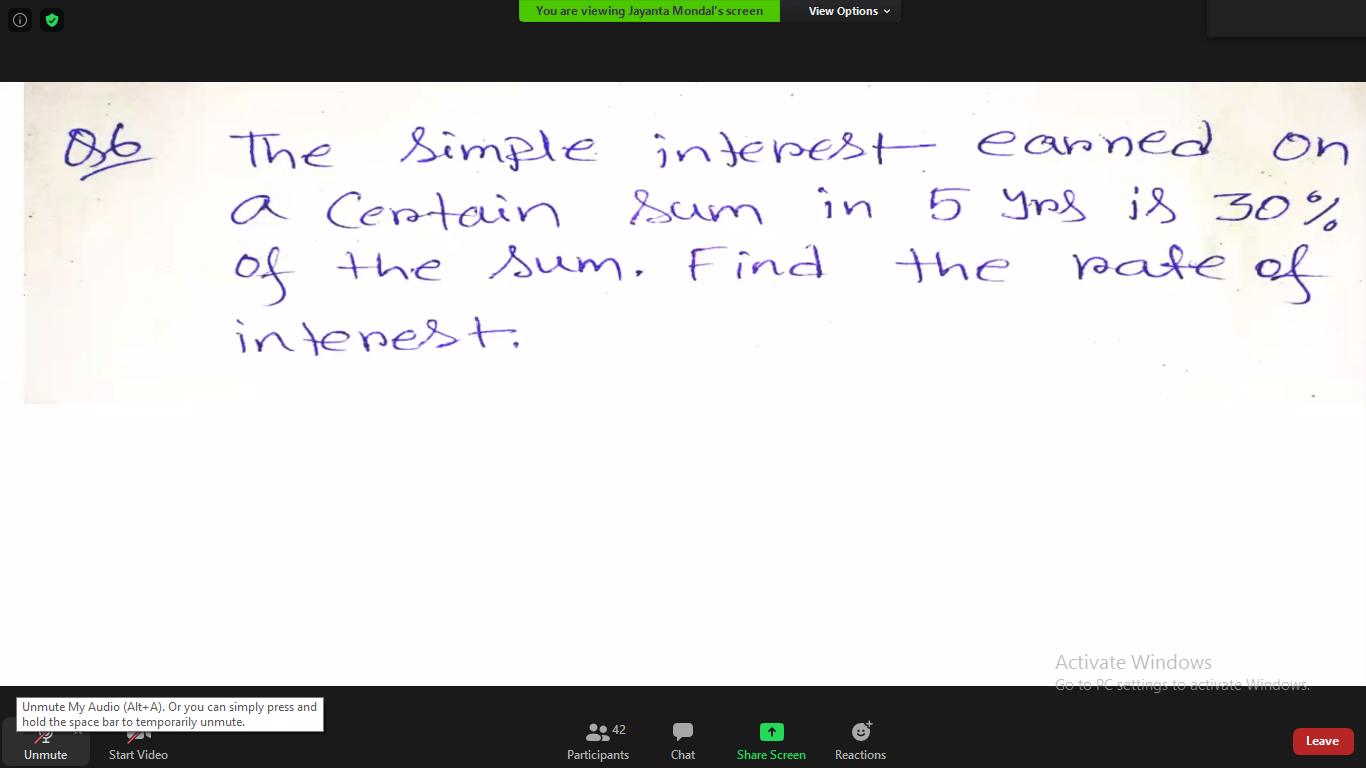 You are viewing Jayanta Mondal's screen
View Options
Q6 The simple interest earned on
a certain sum in 5 yrs is 30%
of the sum. Find the rate of
interest.
Activate Windows
Go to PC settings to activate Windows.
Unmute My Audio (Alt+A). Or you can simply press and
hold the space bar to temporarily unmute.
Unmute
Start Video
42
Participants
Chat
Share Screen
Reactions
Leave